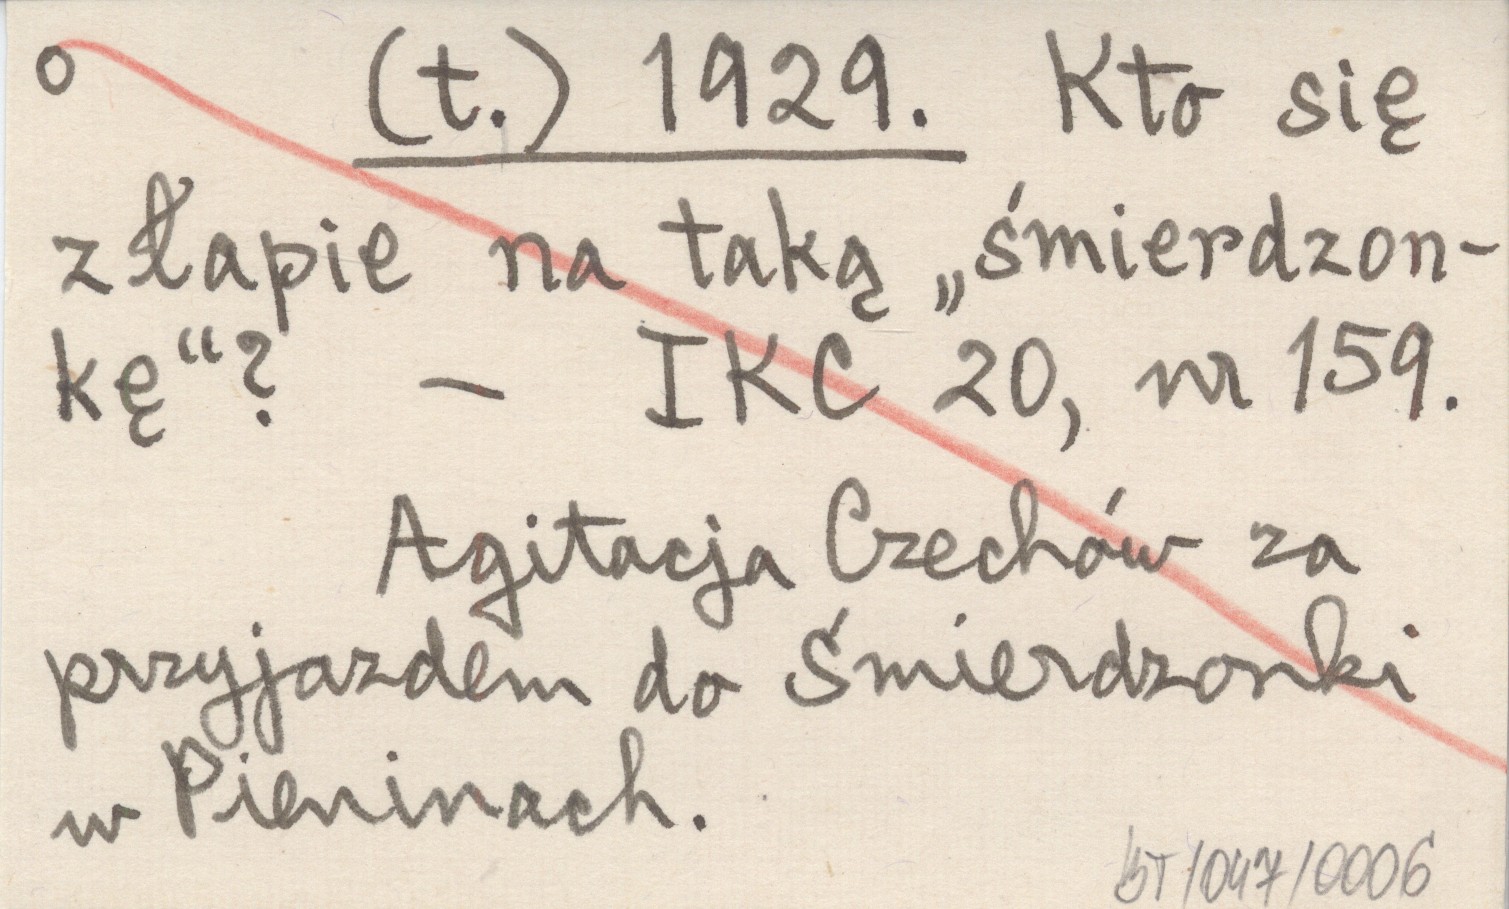 o (t.) 1929. Kto się
złapie na taką „śmierdzon-
kę“? – IKC 20, nr 159.
Agitacja Czechów za
przyjazdem do Śmierdzonki
w Pieninach.
BT/047/0006